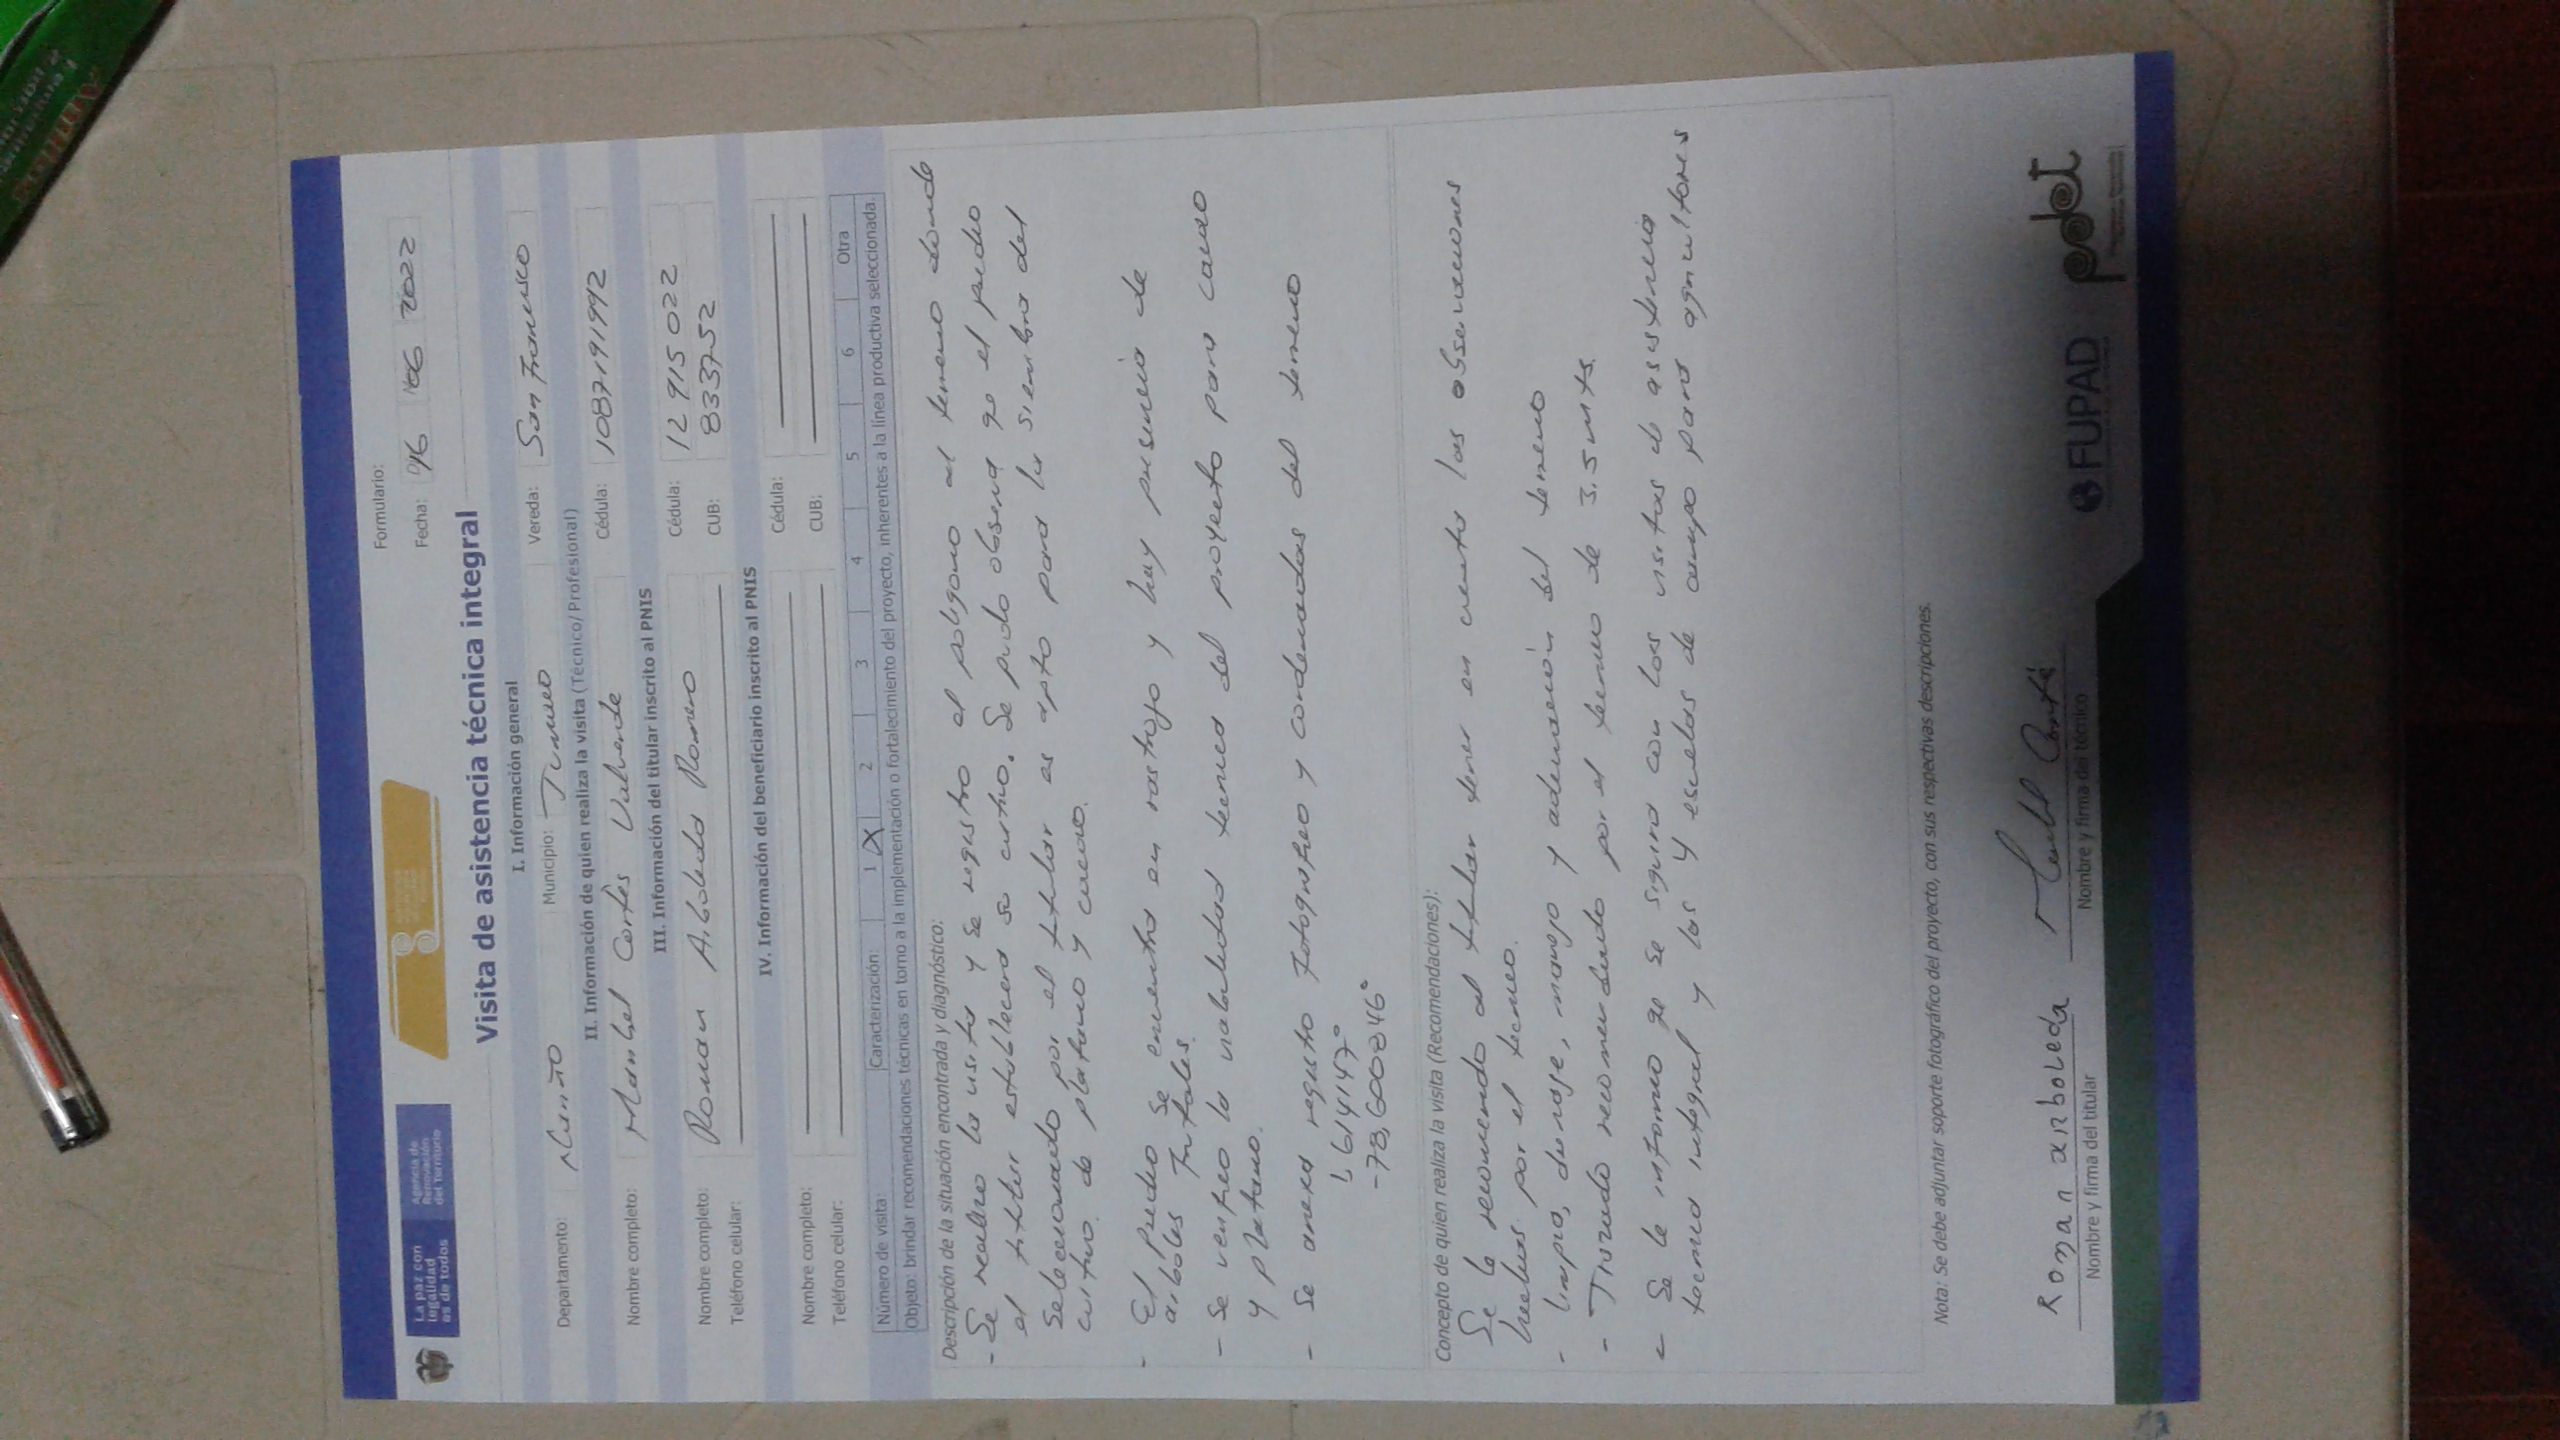 La paz con
legalidad
es de todos
Agencia de
Renovación
del Territorio
Formulario:
Fecha: 016 106 2022
Visita de asistencia técnica integral
I. Información general
Departamento: Nariño Municipio: Tumaco Vereda: San Francisco
II. Información de quien realiza la visita (Técnico/Profesional)
Nombre completo: Manuel Cortés Valverde Cédula: 1087191992
III. Información del titular inscrito al PNIS
Nombre completo: Roman Arboleda Romero Cédula: 12 915 022
Teléfono celular: CUB: 833752
IV. Información del beneficiario inscrito al PNIS
Nombre completo: Cédula:
Teléfono celular: CUB:
Número de visita: Caracterización: 1 X 2 3 4 5 6 Otra
Objeto: brindar recomendaciones técnicas en torno a la implementación o fortalecimiento del proyecto, inherentes a la línea productiva seleccionada.
Descripción de la situación encontrada y diagnóstico:
- Se realizo la visita y se registro el poligono al terreno donde
el titular establecera su cultivo. Se pudo observa qe el predio
Seleccionado por el titular es apto para la siembra del
cultivo de platano y cacao.
- El predio se encuentra en rastrojo y hay presencia de
arboles frutales.
- Se verifico la viabilidad tecnica del proyecto para cacao
y platano.
- Se anexa registro fotografico y cordenadas del terreno
1,614147°
-78,600846°
Concepto de quien realiza la visita (Recomendaciones):
Se le recomendo al titular tener en cuenta las observaciones
hechas por el tecnico.
- limpia, drenaje, manejo y adecuación del terreno
- Trazado recomendado por el tecnico de 3.5 mts.
- Se le informo qe se siguira con las visitas de asistencia
tecnica integral y las 4 escuelas de campo para agricultores
Nota: Se debe adjuntar soporte fotográfico del proyecto, con sus respectivas descripciones.
Roman arboleda
Nombre y firma del titular
Manuel Cortés
Nombre y firma del técnico
FUPAD
pdet